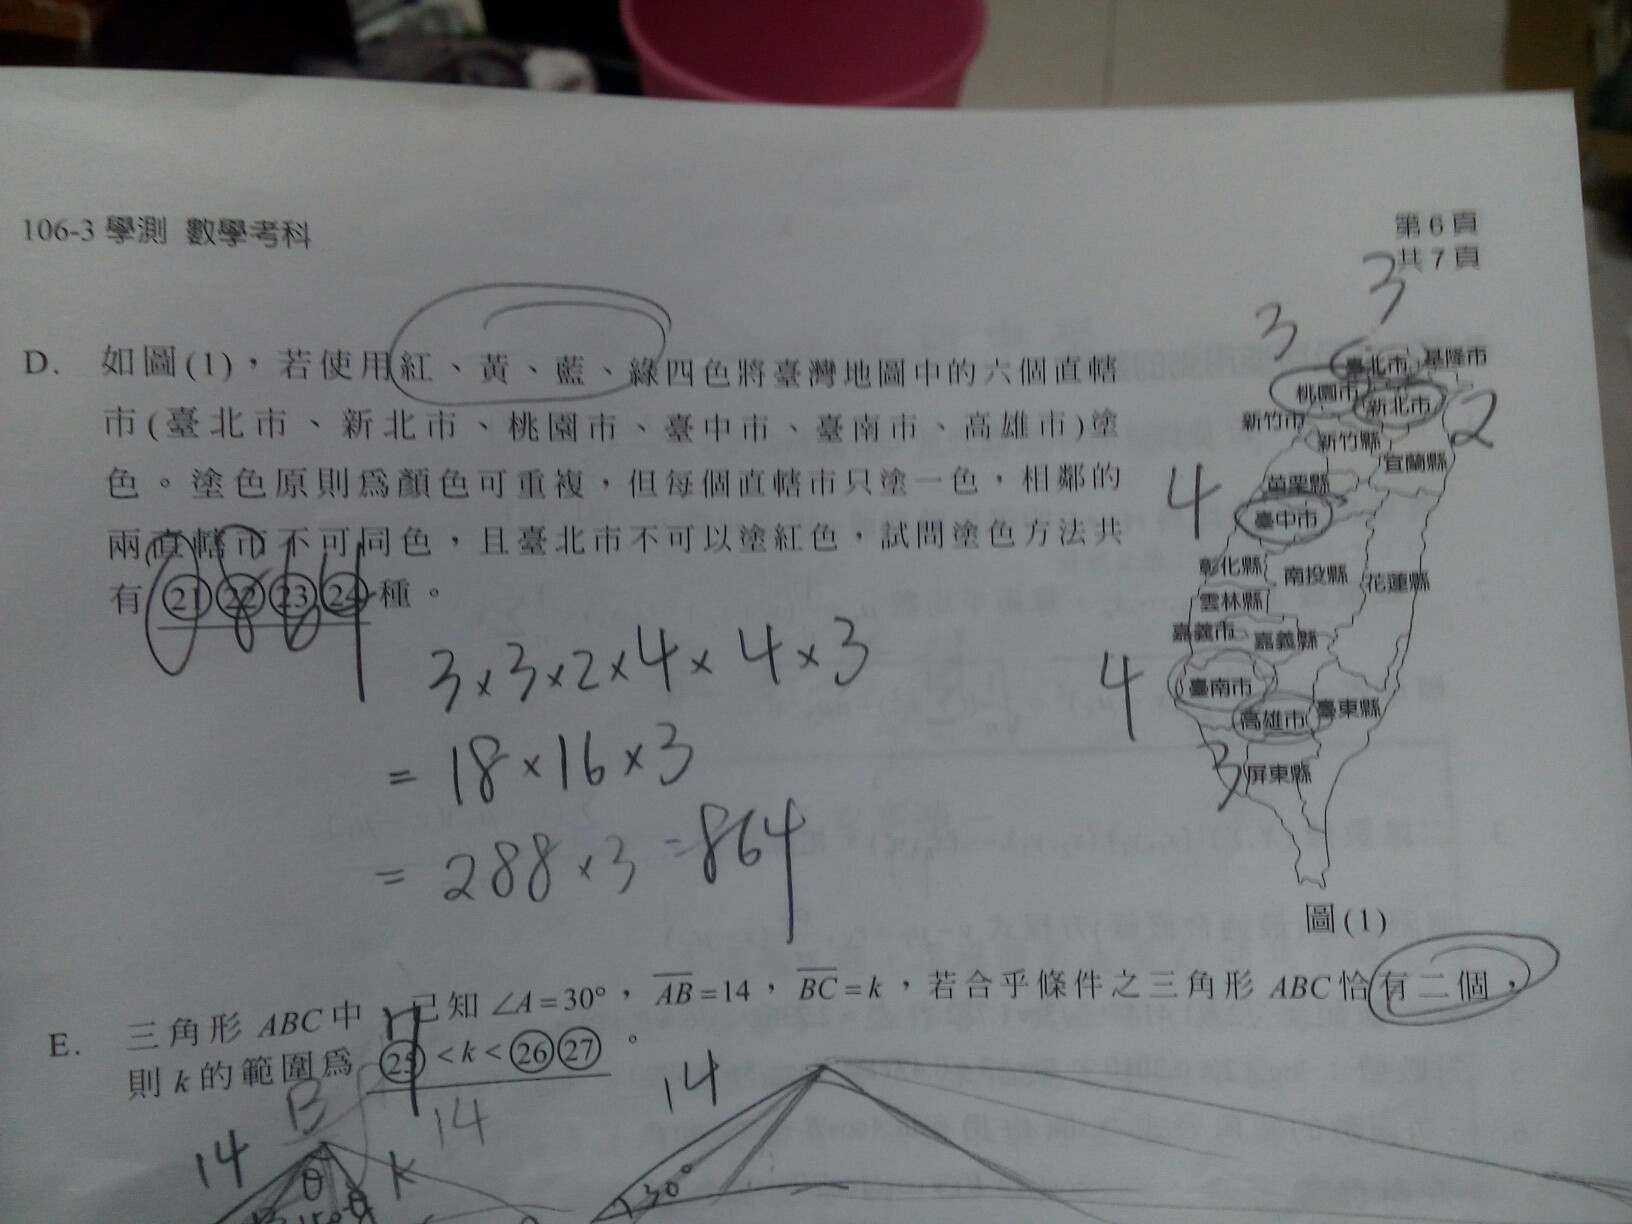 106-3 學測 數學考科
第 6 頁
共 7 頁
D. 如圖(1)，若使用紅、黃、藍、綠四色將臺灣地圖中的六個直轄
市(臺北市、新北市、桃園市、臺中市、臺南市、高雄市)塗
色。塗色原則為顏色可重複，但每個直轄市只塗一色，相鄰的
兩直轄市不可同色，且臺北市不可以塗紅色，試問塗色方法共
有 ㉑㉒㉓㉔ 種。
864
3×3×2×4×4×3
= 18×16×3
= 288×3 =864
3
3
臺北市 基隆市
桃園市 新北市
2
新竹市 新竹縣
宜蘭縣
苗栗縣
4
臺中市
彰化縣 南投縣 花蓮縣
雲林縣
嘉義市 嘉義縣
4
臺南市
高雄市 臺東縣
3
屏東縣
圖(1)
E. 三角形 ABC 中，已知 ∠A=30°，AB=14，BC=k，若合乎條件之三角形 ABC 恰有二個，
則 k 的範圍為 ㉕ <k< ㉖㉗ 。
14
B
14
k
θ
14
30°